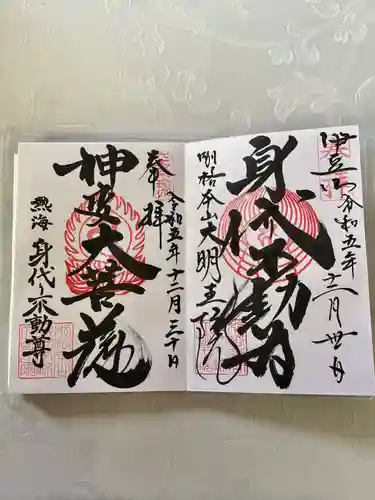 伊豆山
令和五年
十二月卅日
身代不動
別格本山大明王院
奉拝
令和五年十二月三十日
神変大菩薩
熱海
身代不動尊